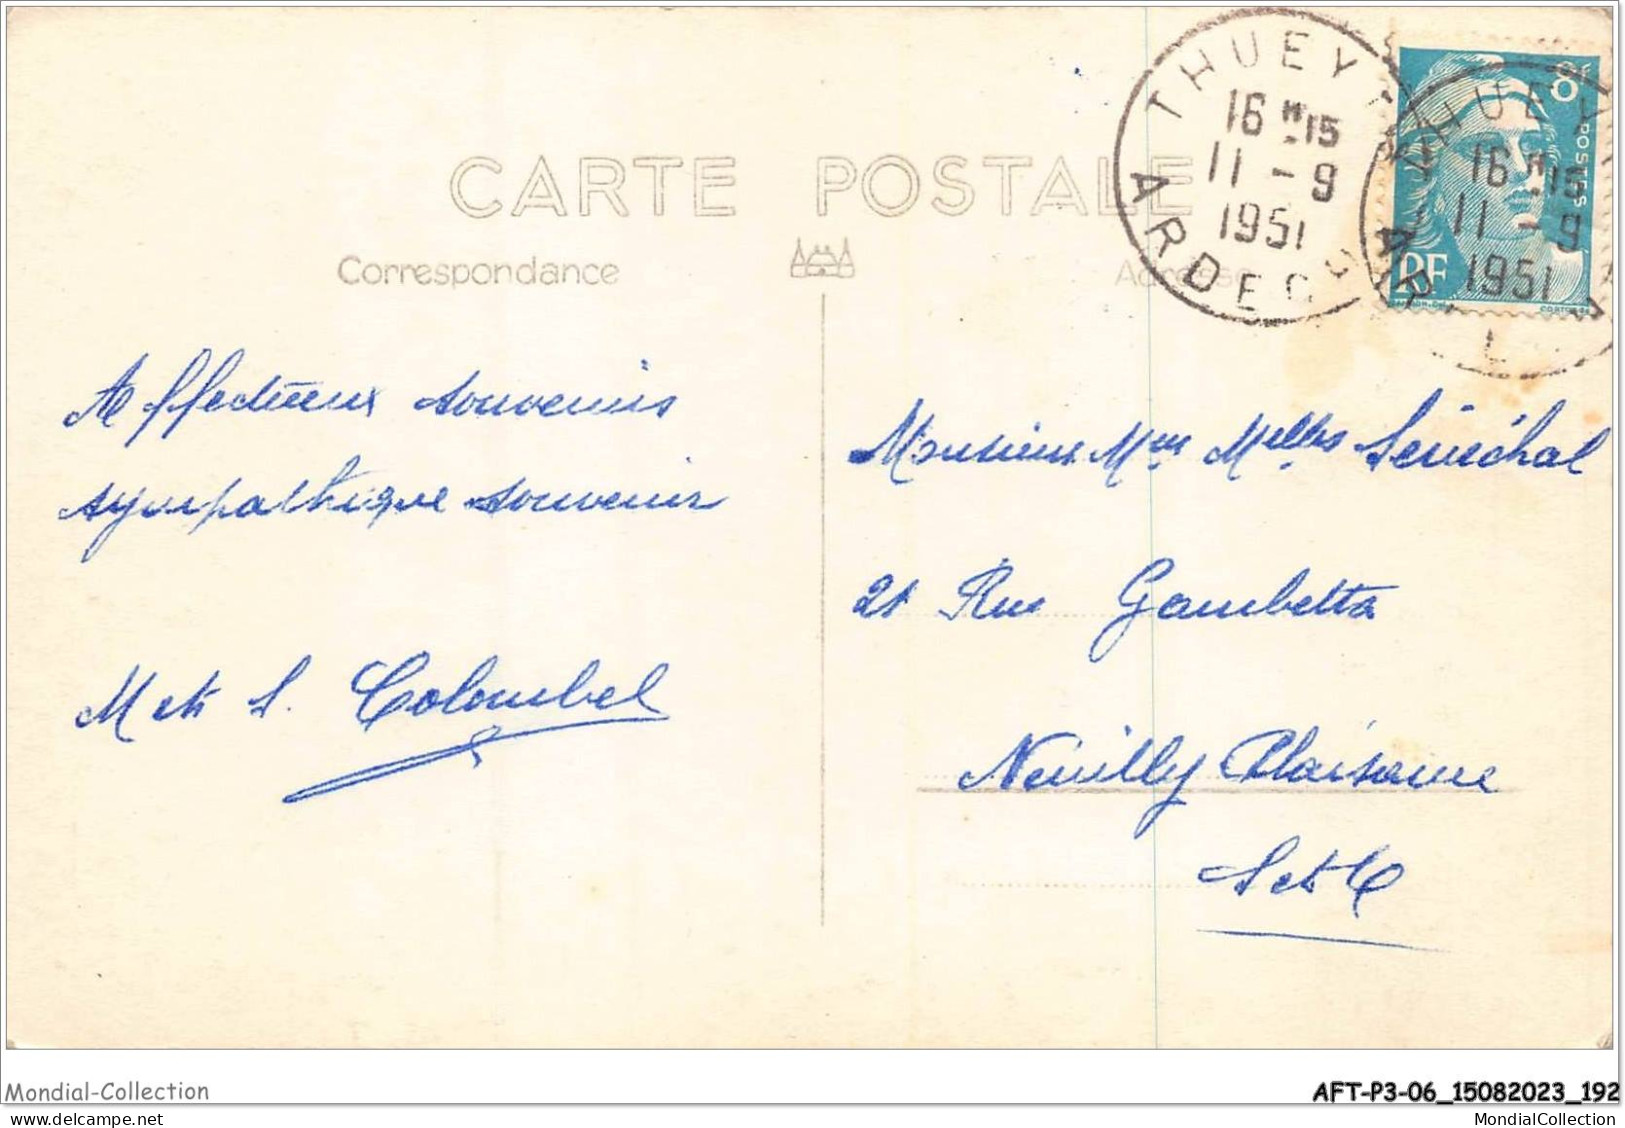 CARTE POSTALE
Correspondance
Adresse
THUEYTS
16 H 15
11 - 9
1951
ARDECHE
8F
POSTES
RF
THUEYTS
16 H 15
11 - 9
1951
Affectueux souvenirs
sympathique souvenir
M et S. Colombel
Monsieur Mme Melles Sénéchal
21 Rue Gambetta
Neuilly Plaisance
S et O
Mondial-Collection
AFT-P3-06_15082023_192
MondialCollection